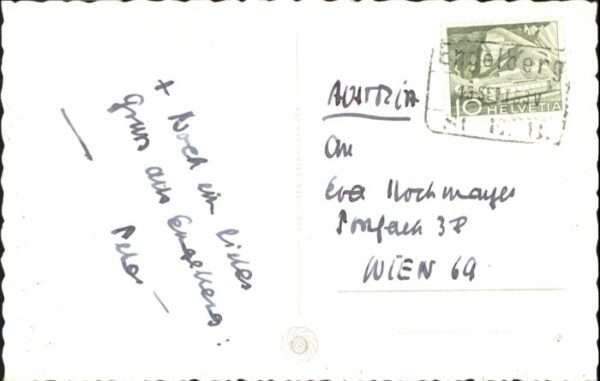 + Noch ein liebes
Gruss aus Engelberg:
Peter
AUSTRIA
An
Eva Hochmayer
Postfach 38
WIEN 69
Engelberg
10 HELVETIA